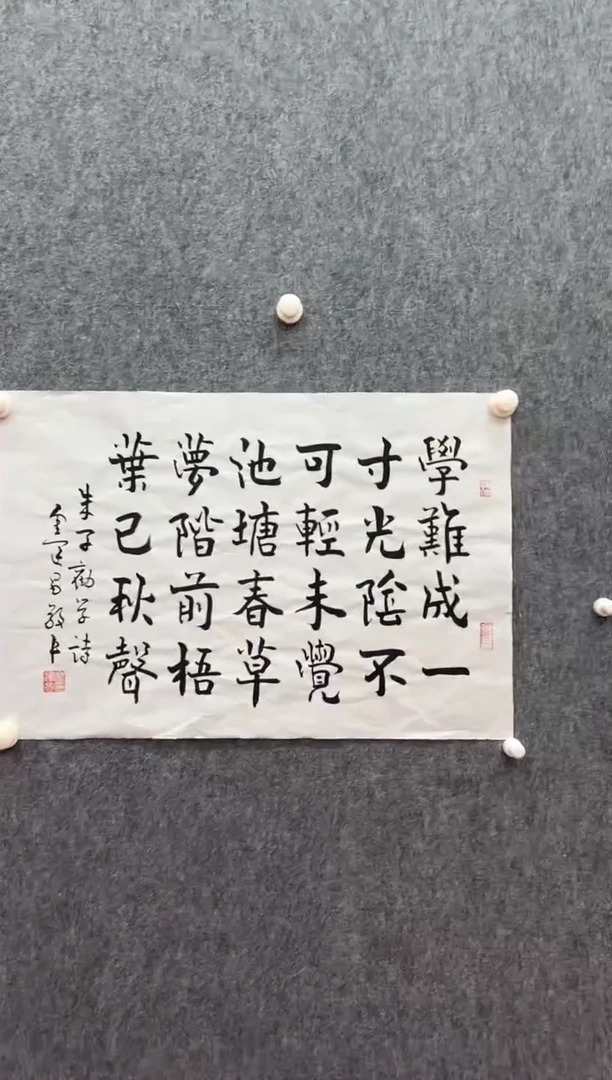 學難成一
寸光陰不
可輕未覺
池塘春草
夢階前梧
葉已秋聲
朱子勸學詩